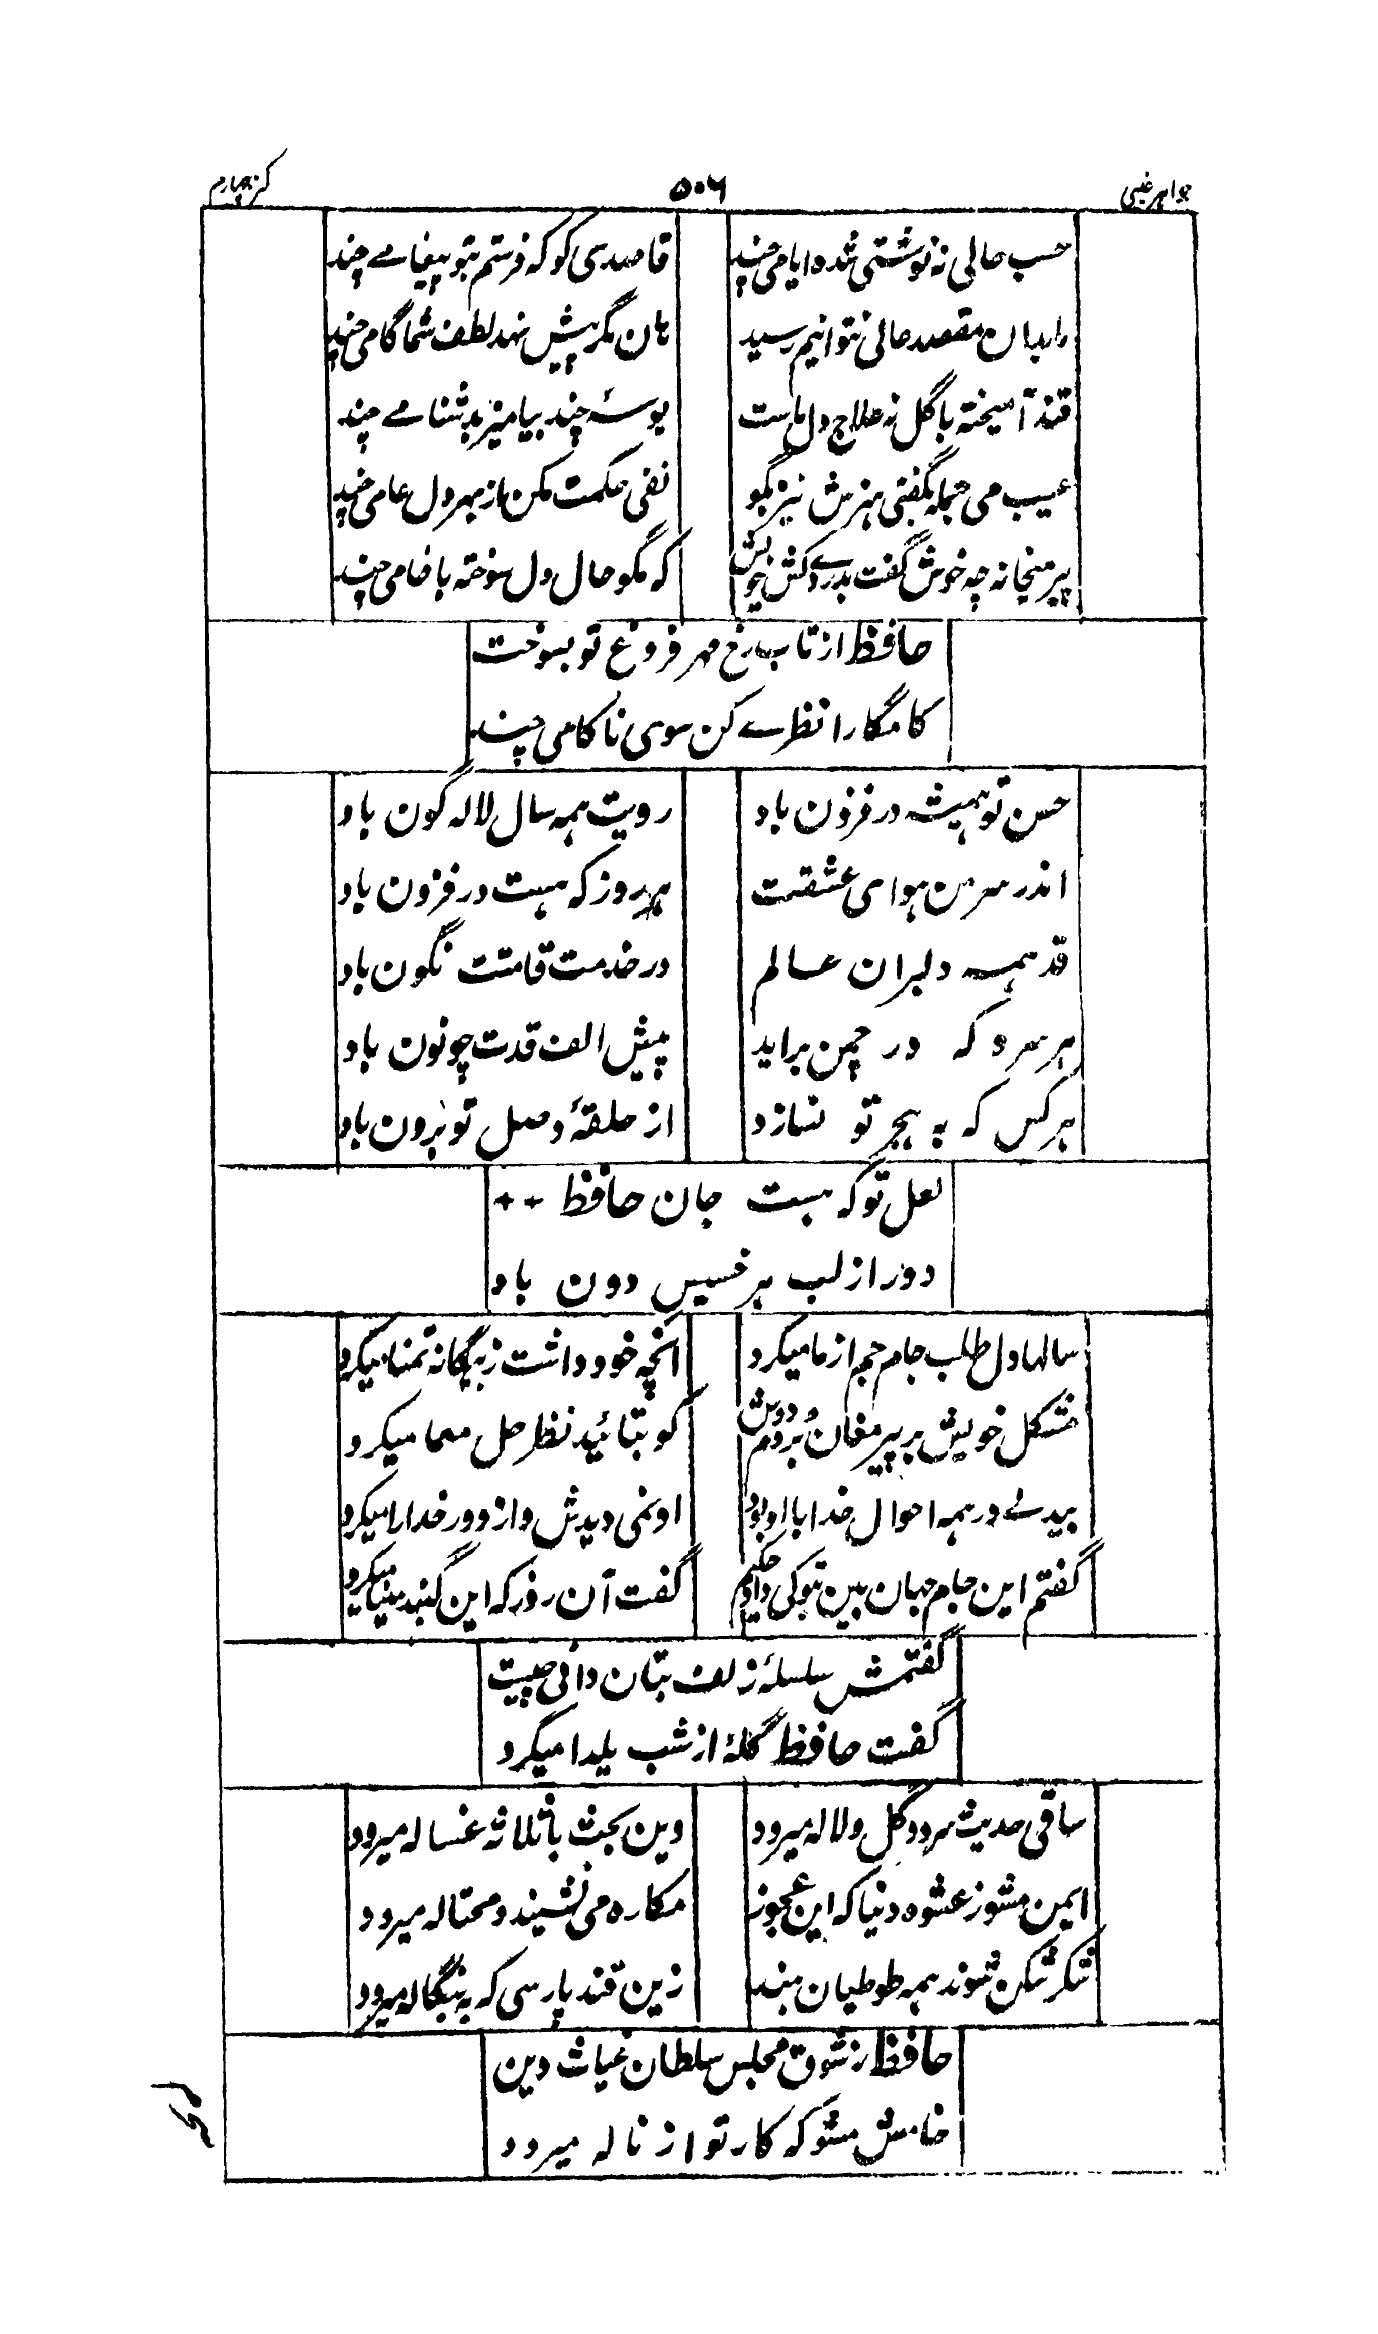 جواهر غیبی ۵۰۶ کنز چهارم
حسب حالی نه نوشتی شده ایامی چند قاصدی کو که فرستم بتو پیغامے چند
مابدان مقصد عالی نتوانیم رسید هان مگر پیش نهد لطف شما گامی چند
قند آمیخته با گل نه علاج دل ماست بوسهٔ چند بیامیز بدشنامے چند
عیب می جمله بگفتی هنرش نیز بگو نفی حکمت مکن از بهر دل عامی چند
پیر میخانه چه خوش گفت بدردے کش خویش که مگو حال دل سوخته با خامی چند
حافظ از تاب رخ مهر فروغ تو بسوخت
کامگارا نظرے کن سوی ناکامی چند
حسن تو همیشه در فزون باد رویت همه سال لاله گون باد
اندر سر من هوای عشقت هر روز که هست در فزون باد
قد همه دلبران عالم در خدمت قامتت نگون باد
هر سرو که در چمن براید پیش الف قدت چو نون باد
هر کس که به هجر تو نسازد از حلقهٔ وصل تو برون باد
لعل تو که هست جان حافظ ++
دور از لب هر خسیس دون باد
سالها دل طلب جام جم از ما میکرد انچه خود داشت ز بیگانه تمنا میکرد
مشکل خویش بر پیر مغان بردم دوش کو بتائید نظر حل معما میکرد
بیدلے در همه احوال خدا با او بود او نمی دیدش و از دور خدا را میکرد
گفتم این جام جهان بین بتو کی داد حکیم گفت آن روز که این گنبد مینا میکرد
گفتمش سلسلهٔ زلف بتان دانی چیست
گفت حافظ گلهٔ از شب یلدا میکرد
ساقی حدیث سرو و گل و لاله میرود وین بحث با ثلاثه غساله میرود
ایمن مشو ز عشوه دنیا که این عجوز مکاره می نشیند و محتاله میرود
شکر شکن شوند همه طوطیان هند زین قند پارسی که به بنگاله میرود
حافظ ز شوق مجلس سلطان غیاث دین
خامش مشو که کار تو از ناله میرود